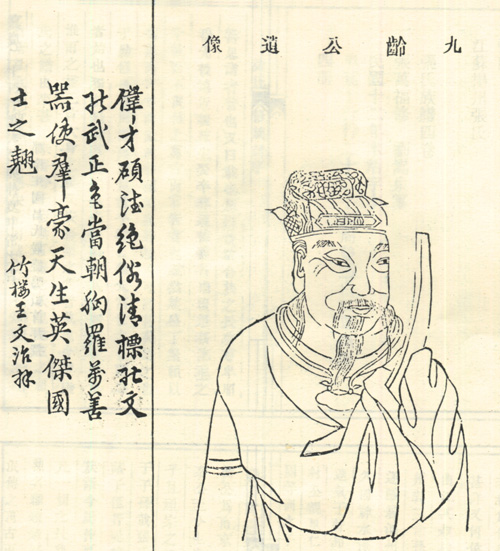 九齡公遺像
偉才碩德絕俗清標能文
能武正色當朝胸羅萬善
器使羣豪天生英傑國
士之翹 竹樓王文治拜